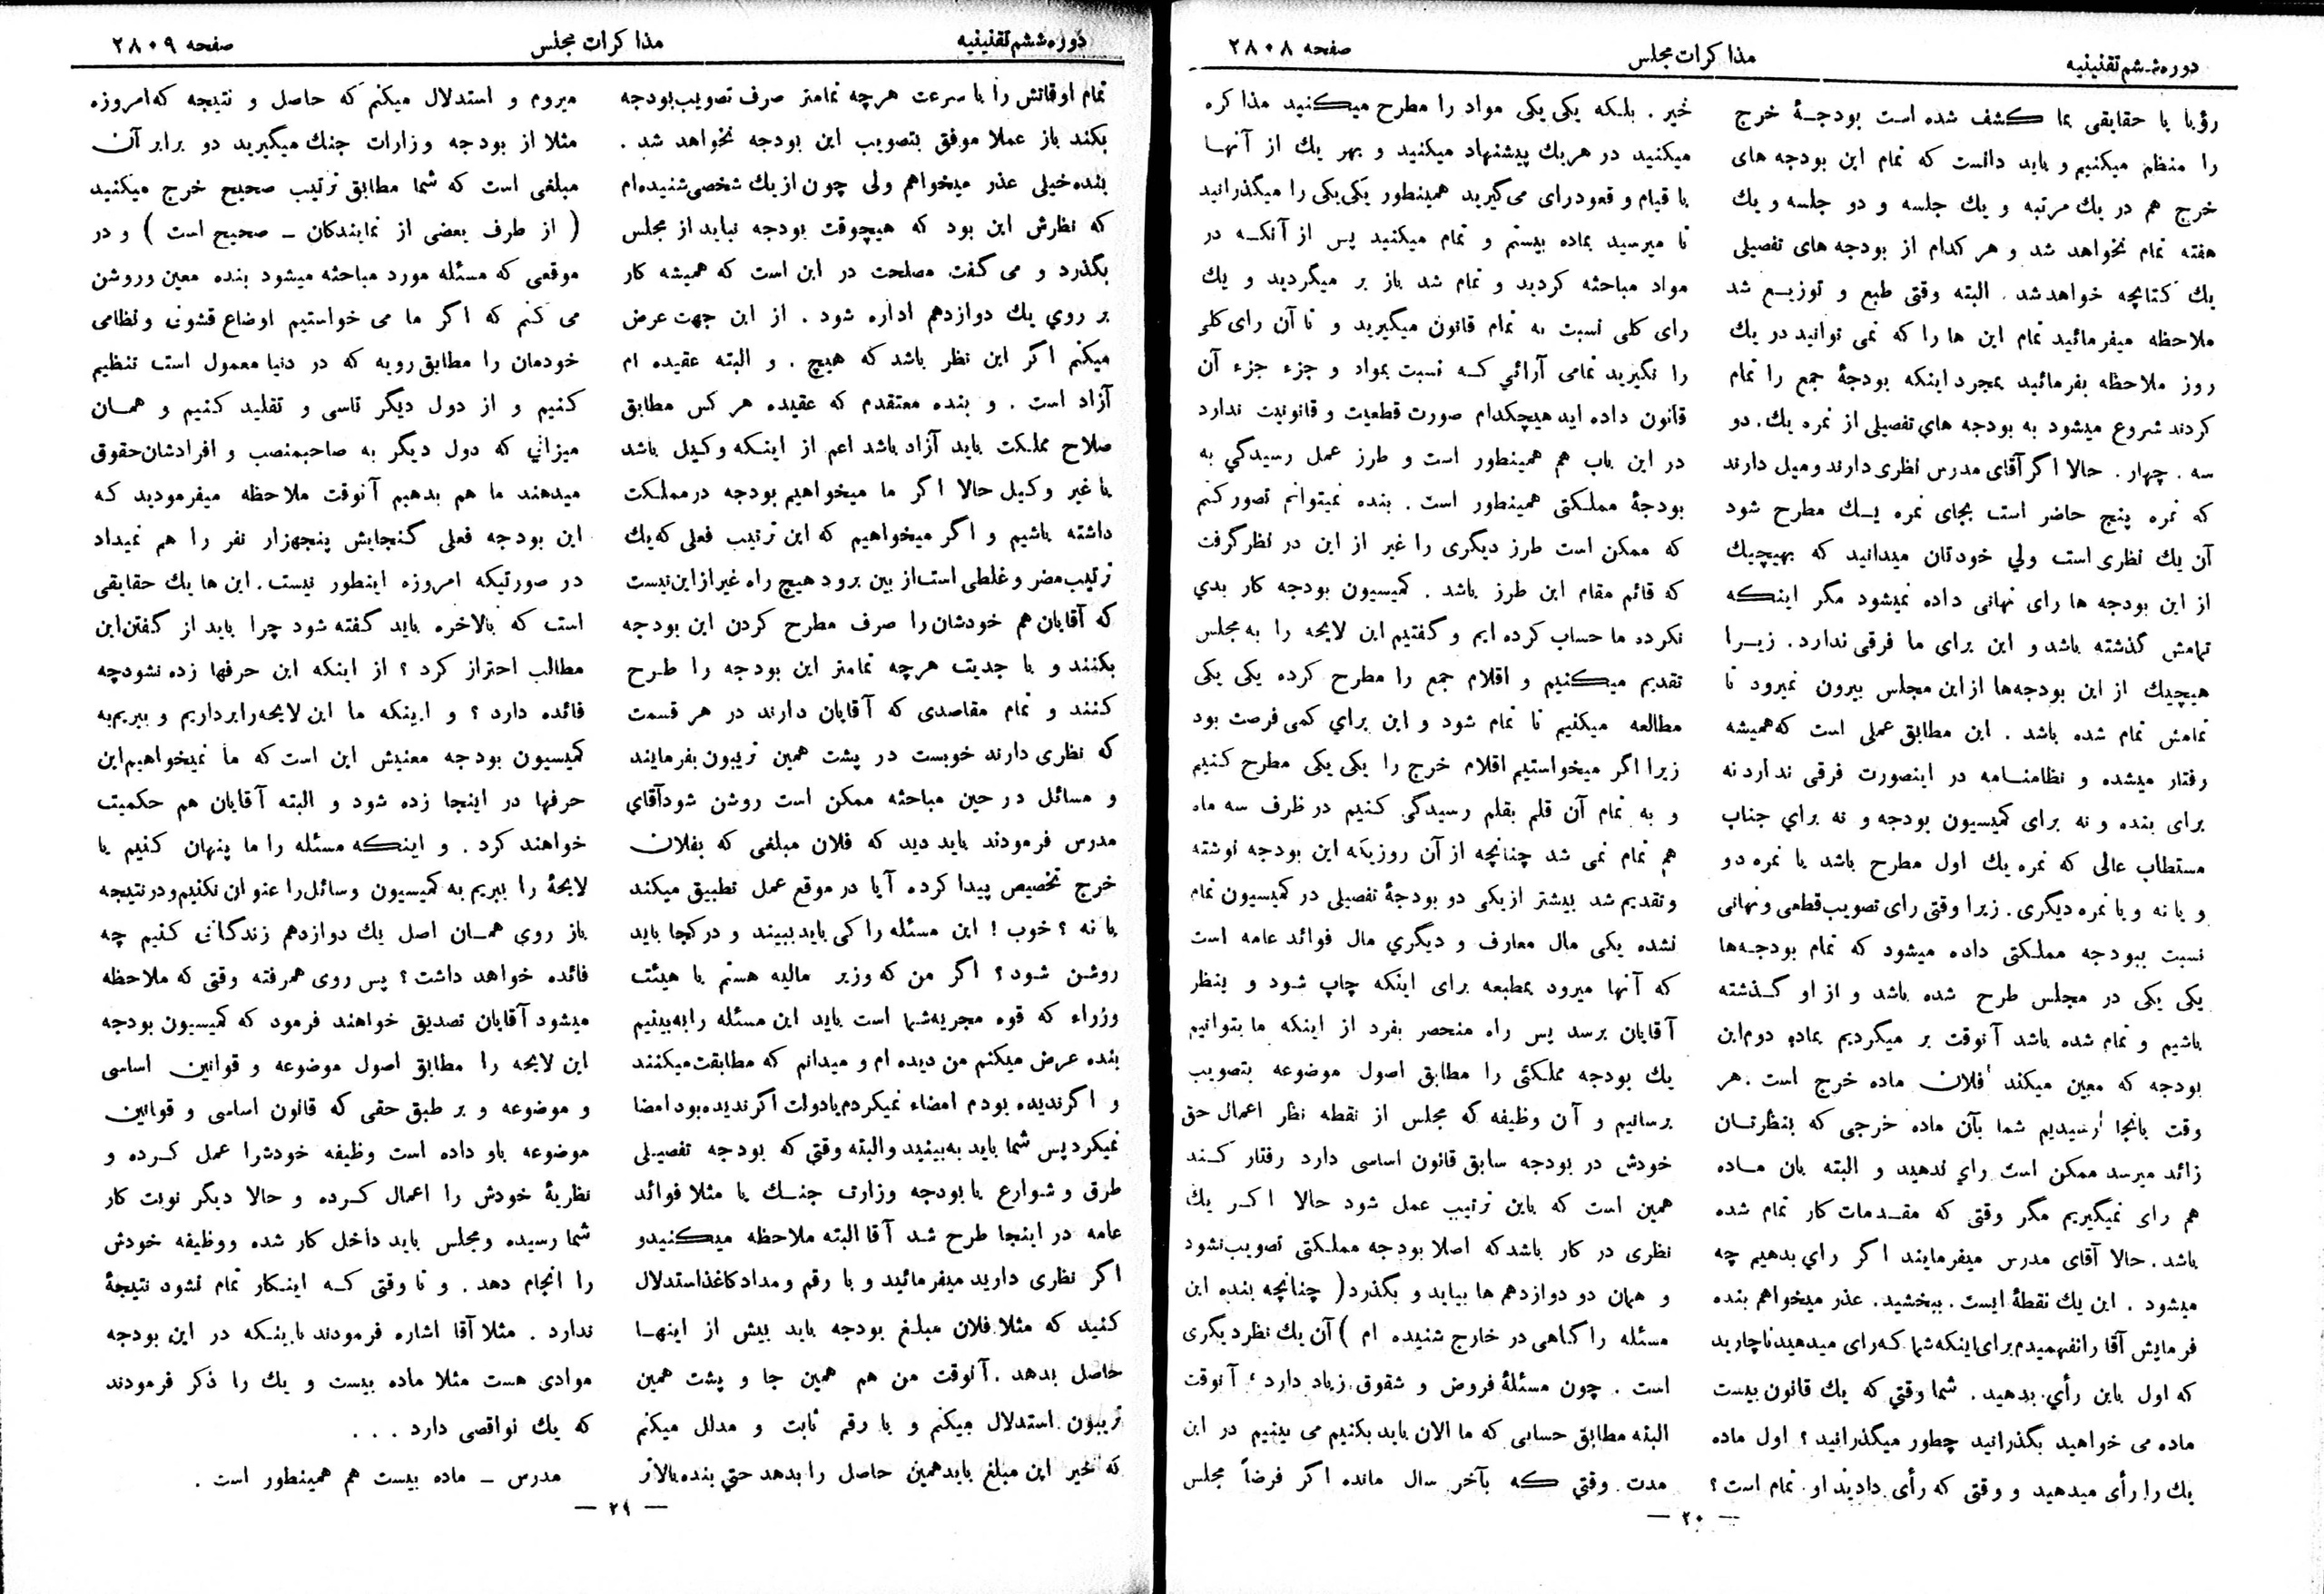 دوره ششم تقنینیه
مذاکرات مجلس
صفحه ۲۸۰۸
رؤیا یا حقایقی بما کشف شده است بودجهٔ خرج
را منظم میکنیم و باید دانست که تمام این بودجه های
خرج هم در یك مرتبه و یك جلسه و دو جلسه و یك
هفته تمام نخواهد شد و هر کدام از بودجه های تفصیلی
یك کتابچه خواهد شد . البته وقتی طبع و توزیع شد
ملاحظه میفرمائید تمام این ها را که نمی توانید در یك
روز ملاحظه بفرمائید بمجرد اینکه بودجهٔ جمع را تمام
کردند شروع میشود به بودجه های تفصیلی از نمره یك . دو
سه . چهار . حالا اگر آقای مدرس نظری دارند و میل دارند
که نمره پنج حاضر است بجای نمره یك مطرح شود
آن یك نظری است ولي خودتان میدانید که بهیچیك
از این بودجه ها رای نهانی داده نمیشود مگر اینکه
تمامش گذشته باشد و این برای ما فرقی ندارد . زیرا
هیچیك از این بودجه‌ها از این مجلس بیرون نمیرود تا
تمامش تمام شده باشد . این مطابق عملی است که همیشه
رفتار میشده و نظامنامه در اینصورت فرقی ندارد نه
برای بنده و نه برای کمیسیون بودجه و نه براي جناب
مستطاب عالی که نمره یك اول مطرح باشد یا نمره دو
و یا نه و یا نمره دیگری . زیرا وقتی رای تصویب قطعی و نهانی
نسبت ببودجه مملکتی داده میشود که تمام بودجه‌ها
یکی یکی در مجلس طرح شده باشد و از او گذشته
باشیم و تمام شده باشد آنوقت بر میگردیم بماده دوم این
بودجه که معین میکند فلان ماده خرج است . هر
وقت بانجا رسیدیم شما بآن ماده خرجی که بنظرتان
زائد میرسد ممکن است راي ندهید و البته بان ماده
هم رای نمیگیریم مگر وقتی که مقدمات کار تمام شده
باشد . حالا آقای مدرس میفرمایند اگر راي بدهیم چه
میشود . این یك نقطهٔ ایست . ببخشید . عذر میخواهم بنده
فرمایش آقا را نفهمیدم برای اینکه شما که رای میدهید ناچارید
که اول باین رأي بدهید . شما وقتي که یك قانون بیست
ماده می خواهید بگذرانید چطور میگذرانید ؟ اول ماده
یك را رأی میدهید و وقتی که رأی دادید او تمام است ؟
خیر . بلکه یکی یکی مواد را مطرح میکنید مذاکره
میکنید در هریك پیشنهاد میکنید و بهر یك از آنها
با قیام و قعود رای می گیرید همینطور یکی یکی را میگذرانید
تا میرسید بماده بیستم و تمام میکنید پس از آنکه در
مواد مباحثه کردید و تمام شد باز بر میگردید و یك
رای کلی نسبت به تمام قانون میگیرید و تا آن رای کلی
را نگیرید تمامی آرائي که نسبت بمواد و جزء جزء آن
قانون داده اید هیچکدام صورت قطعیت و قانونیت ندارد
در این باب هم همینطور است و طرز عمل رسیدگي به
بودجهٔ مملکتی همینطور است . بنده نمیتوانم تصور کنم
که ممکن است طرز دیگری را غیر از این در نظر گرفت
که قائم مقام این طرز باشد . کمیسیون بودجه کار بدي
نکرده ما حساب کرده ایم و گفتیم این لایحه را به مجلس
تقدیم میکنیم و اقلام جمع را مطرح کرده یکی یکی
مطالعه میکنیم تا تمام شود و این براي کمی فرصت بود
زیرا اگر میخواستیم اقلام خرج را یکی یکی مطرح کنیم
و به تمام آن قلم بقلم رسیدگی کنیم در ظرف سه ماه
هم تمام نمی شد چنانچه از آن روزیکه این بودجه نوشته
و تقدیم شد بیشتر از یکی دو بودجهٔ تفصیلی در کمیسیون تمام
نشده یکی مال معارف و دیگري مال فوائد عامه است
که آنها میرود بمطبعه برای اینکه چاپ شود و بنظر
آقایان برسد پس راه منحصر بفرد از اینکه ما بتوانیم
یك بودجه مملکتی را مطابق اصول موضوعه بتصویب
برسانیم و آن وظیفه که مجلس از نقطه نظر اعمال حق
خودش در بودجه سابق قانون اساسی دارد رفتار کند
همین است که باین ترتیب عمل شود حالا اگر یك
نظری در کار باشد که اصلا بودجه مملکتی تصویب نشود
و همان دو دوازدهم ها بیاید و بگذرد ( چنانچه بنده این
مسئله را گاهی در خارج شنیده ام ) آن یك نظر دیگری
است . چون مسئلهٔ فروض و شقوق زیاد دارد ؛ آنوقت
البته مطابق حسابی که ما الان باید بکنیم می بینیم در این
مدت وقتي که بآخر سال مانده اگر فرضاً مجلس
— ۲۰ —
دوره ششم تقنینیه
مذاکرات مجلس
صفحه ۲۸۰۹
تمام اوقاتش را با سرعت هرچه تمامتر صرف تصویب بودجه
بکند باز عملا موفق بتصویب این بودجه نخواهد شد .
بنده خیلی عذر میخواهم ولی چون از یك شخصی شنیده‌ام
که نظرش این بود که هیچوقت بودجه نباید از مجلس
بگذرد و می گفت مصلحت در این است که همیشه کار
بر روي یك دوازدهم اداره شود . از این جهت عرض
میکنم اگر این نظر باشد که هیچ . و البته عقیده ام
آزاد است . و بنده معتقدم که عقیده هر کس مطابق
صلاح مملکت باید آزاد باشد اعم از اینکه وکیل باشد
یا غیر وکیل حالا اگر ما میخواهیم بودجه در مملکت
داشته باشیم و اگر میخواهیم که این ترتیب فعلی که یك
ترتیب مضر و غلطی است از بین برود هیچ راه غیر از این نیست
که آقایان هم خودشان را صرف مطرح کردن این بودجه
بکنند و با جدیت هرچه تمامتر این بودجه را طرح
کنند و تمام مقاصدی که آقایان دارند در هر قسمت
که نظری دارند خوبست در پشت همین تریبون بفرمایند
و مسائل در حین مباحثه ممکن است روشن شود آقاي
مدرس فرمودند باید دید که فلان مبلغی که بفلان
خرج تخصیص پیدا کرده آیا در موقع عمل تطبیق میکند
یا نه ؟ خوب ! این مسئله را کی باید ببیند و در کجا باید
روشن شود ؟ اگر من که وزیر مالیه هستم یا هیئت
وزراء که قوه مجریه شما است باید این مسئله را به‌بینیم
بنده عرض میکنم من دیده ام و میدانم که مطابقت میکنند
و اگر ندیده بودم امضاء نمیکردم یا دولت اگر ندیده بود امضا
نمیکرد پس شما باید به‌بینید و البته وقتي که بودجه تفصیلی
طرق و شوارع یا بودجه وزارت جنك یا مثلا فوائد
عامه در اینجا طرح شد آقا البته ملاحظه میکنید و
اگر نظری دارید میفرمائید و با رقم و مداد کاغذ استدلال
کنید که مثلا فلان مبلغ بودجه باید بیش از اینها
حاصل بدهد . آنوقت من هم همین جا و پشت همین
تریبون استدلال میکنم و با رقم ثابت و مدلل میکنم
که خیر این مبلغ باید همین حاصل را بدهد حتي بنده بالاتر
میروم و استدلال میکنم که حاصل و نتیجه که امروزه
مثلا از بودجه وزارات جنك میگیرید دو برابر آن
مبلغی است که شما مطابق ترتیب صحیح خرج میکنید
( از طرف بعضی از نمایندکان ـ صحیح است ) و در
موقعی که مسئله مورد مباحثه میشود بنده معین و روشن
می کنم که اگر ما می خواستیم اوضاع قشونی و نظامی
خودمان را مطابق رویه که در دنیا معمول است تنظیم
کنیم و از دول دیگر تاسی و تقلید کنیم و همان
میزاني که دول دیگر به صاحبمنصب و افرادشان حقوق
میدهند ما هم بدهیم آنوقت ملاحظه میفرمودید که
این بودجه فعلی گنجایش پنجهزار نفر را هم نمیداد
در صورتیکه امروزه اینطور نیست . این ها یك حقایقی
است که بالاخره باید گفته شود چرا باید از گفتن این
مطالب احتراز کرد ؟ از اینکه این حرفها زده نشود چه
فائده دارد ؟ و اینکه ما این لایحه را برداریم و ببریم به
کمیسیون بودجه معنیش این است که ما نمیخواهیم این
حرفها در اینجا زده شود و البته آقایان هم حکمیت
خواهند کرد . و اینکه مسئله را ما پنهان کنیم یا
لایحهٔ را ببریم به کمیسیون و سائل را عنوان نکنیم و در نتیجه
باز روی همان اصل یك دوازدهم زندگانی کنیم چه
فائده خواهد داشت ؟ پس روی همرفته وقتی که ملاحظه
میشود آقایان تصدیق خواهند فرمود که کمیسیون بودجه
این لایحه را مطابق اصول موضوعه و قوانین اساسی
و موضوعه و بر طبق حقی که قانون اساسی و قوانین
موضوعه باو داده است وظیفه خودشرا عمل کرده و
نظریهٔ خودش را اعمال کرده و حالا دیگر نوبت کار
شما رسیده و مجلس باید داخل کار شده و وظیفه خودش
را انجام دهد . و تا وقتی که اینکار تمام نشود نتیجهٔ
ندارد . مثلا آقا اشاره فرمودند باینکه در این بودجه
موادی هست مثلا ماده بیست و یك را ذکر فرمودند
که یك نواقصی دارد . . .
مدرس ـ ماده بیست هم همینطور است .
— ۲۱ —